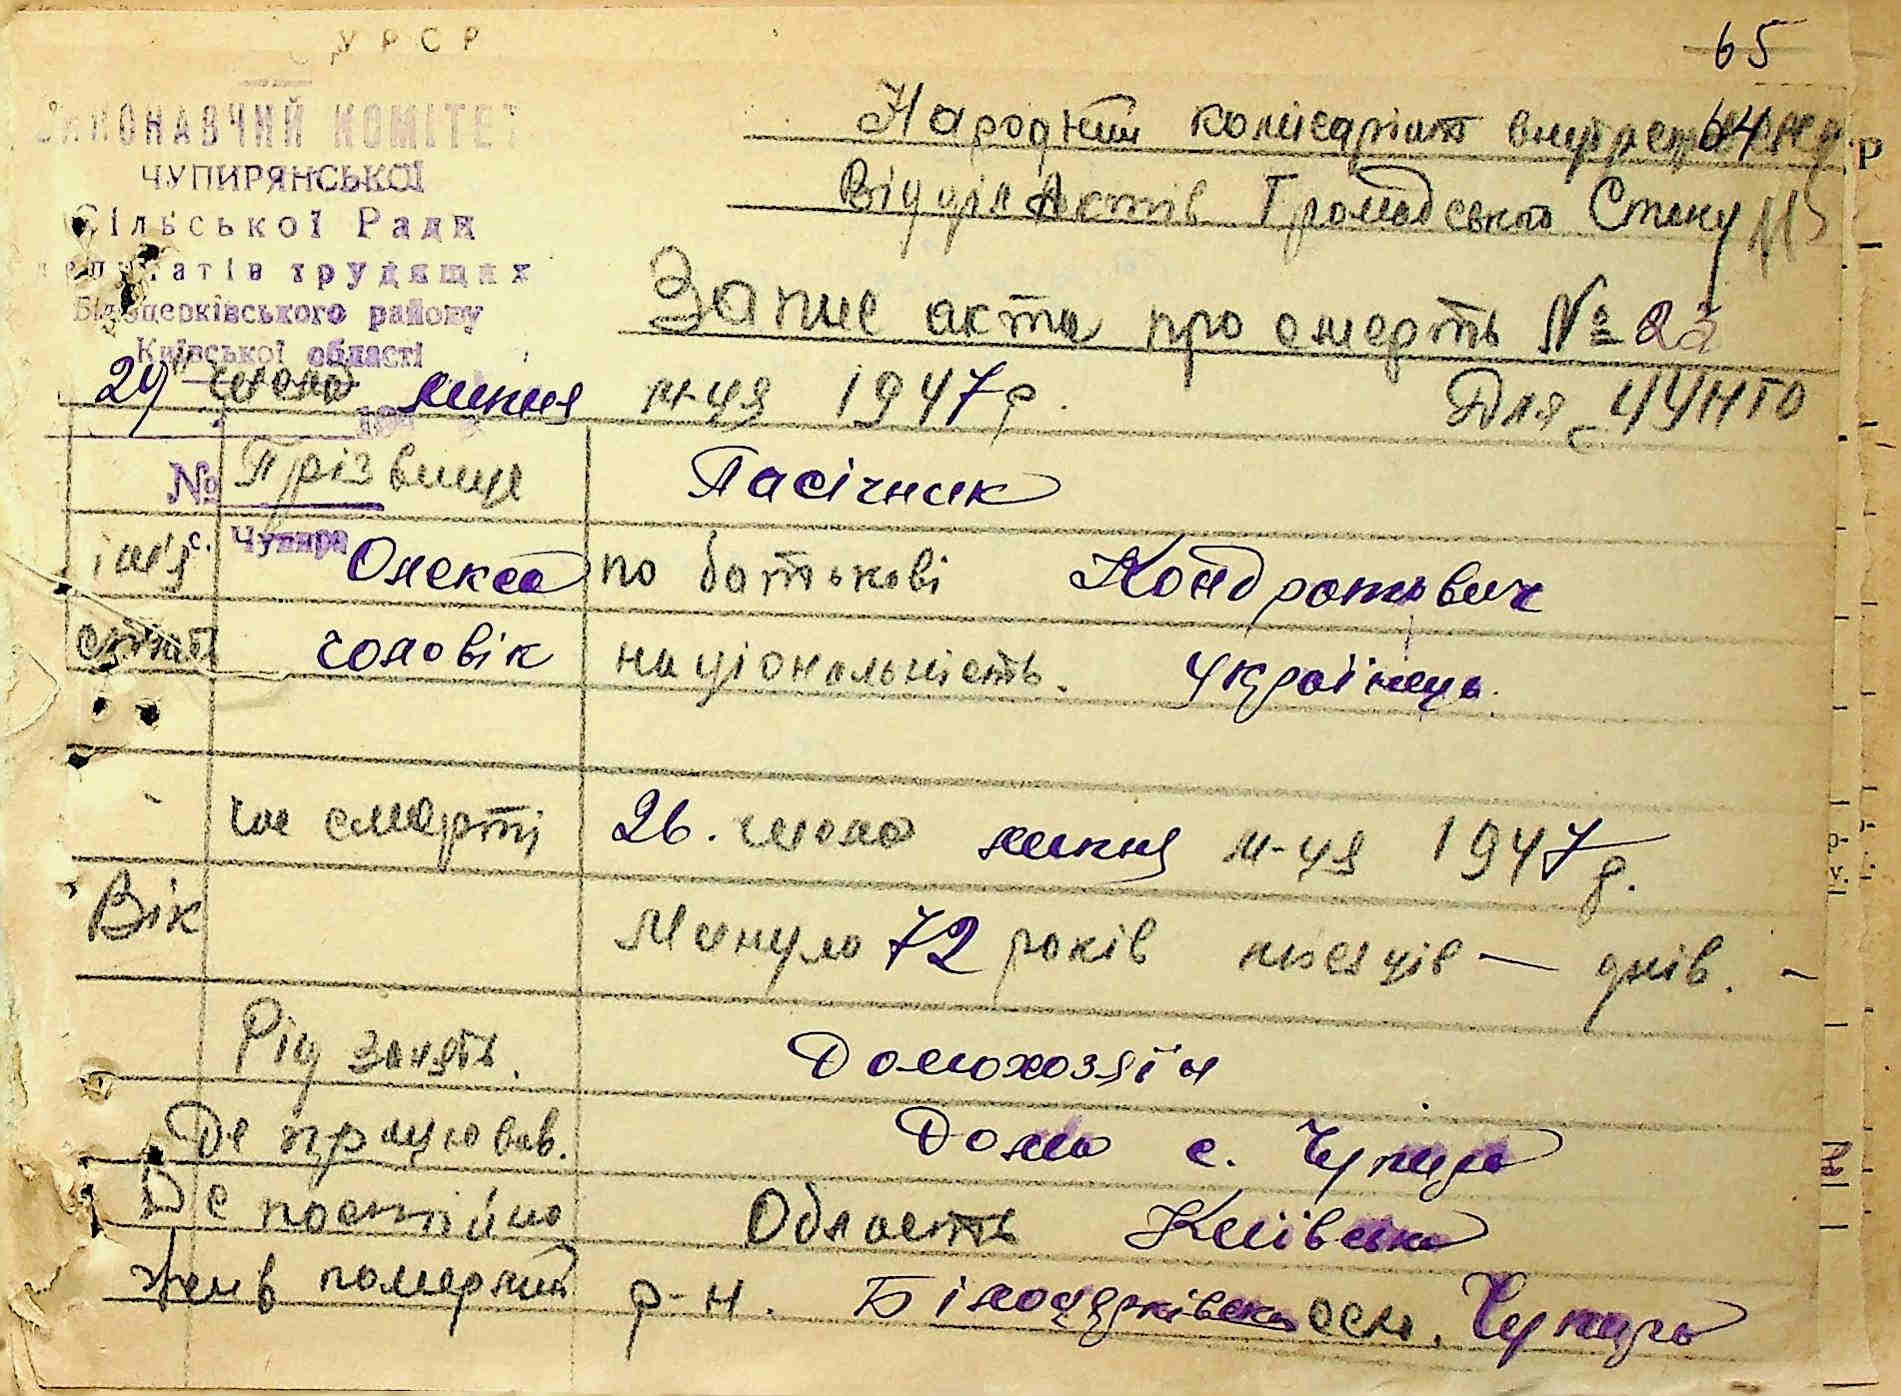 УРСР
65
ВИКОНАВЧИЙ КОМІТЕТ
ЧУПИРЯНСЬКОЇ
Сільської Ради
депутатів трудящих
Білоцерківського району
Київської області
Народний комісаріат внутр 64
Відділ Актів Громадського Стану
Запис акта про смерть №
29 числа липня м-ця 1947 р. Для ЦУНГО
№ Прізвище Пасічник
с. Чупира
ім'я Олекса по батькові Кондратьвич
стать чоловік національність. Українець.
час смерті 26. числа липня м-ця 1947 р.
Вік Минуло 72 років місяців — днів. -
Рід занять. Домохозяїн
Де працював. Дома с. Чупира
Де постійно Область Київська
жив померший р-н. Білоцерківськ осел. Чупира